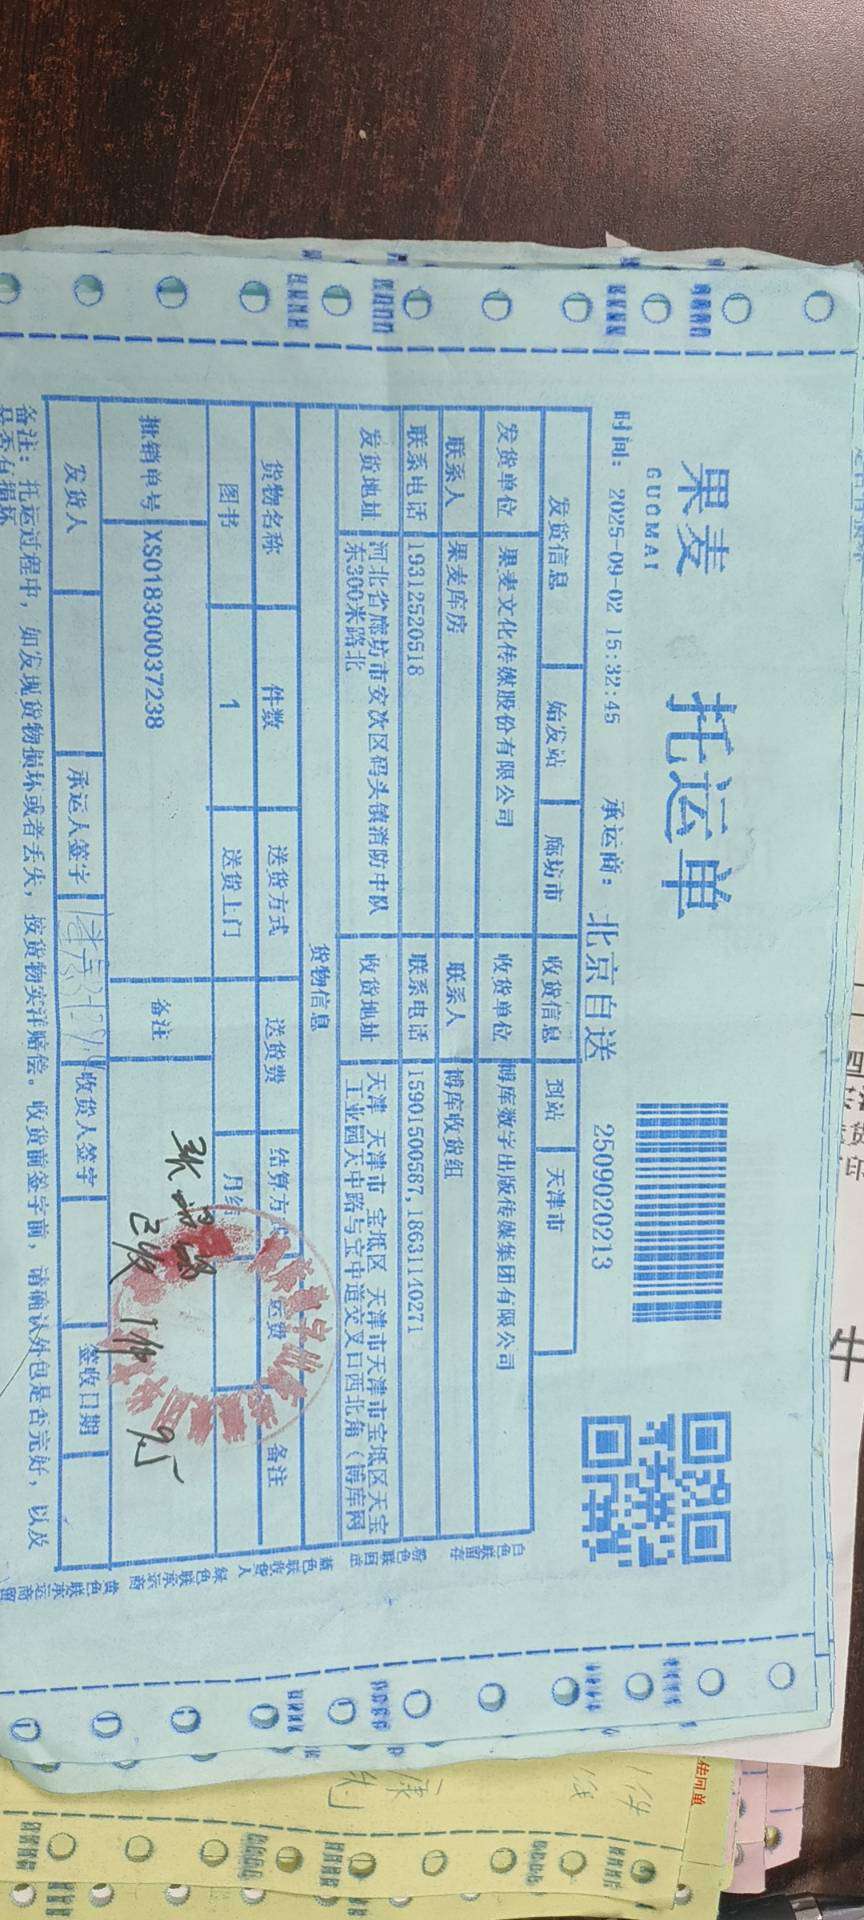 果麦
GUOMAI
托运单
时间： 2025-09-02 15:32:45 承运商：北京自送 2509020213
发货信息 始发站 廊坊市 收货信息 到站 天津市
发货单位 果麦文化传媒股份有限公司 收货单位 博库数字出版传媒集团有限公司
联系人 果麦库房 联系人 博库收货组
联系电话 19312520518 联系电话 15901500587,18631140271
发货地址 河北省廊坊市安次区码头镇消防中队
东300米路北
收货地址 天津 天津市 宝坻区 天津市天津市宝坻区天宝
工业园天中路与宝中道交叉口西北角（博库网
货物信息
货物名称 件数 送货方式 送货费 结算方 运费 备注
图书 1 送货上门 月结
批销单号 XS018300037238 备注
已收 1件 9.5
发货人 承运人签字 收货人签字 签收日期
备注：托运过程中，如发现货物损坏或者丢失，按货物实洋赔偿。收货前签字前，请确认外包是否完好，以及
是否有损坏
白色联留存
粉色联回单
蓝色联收货人
绿色联承运商
黄色联承运商留
1件
牛